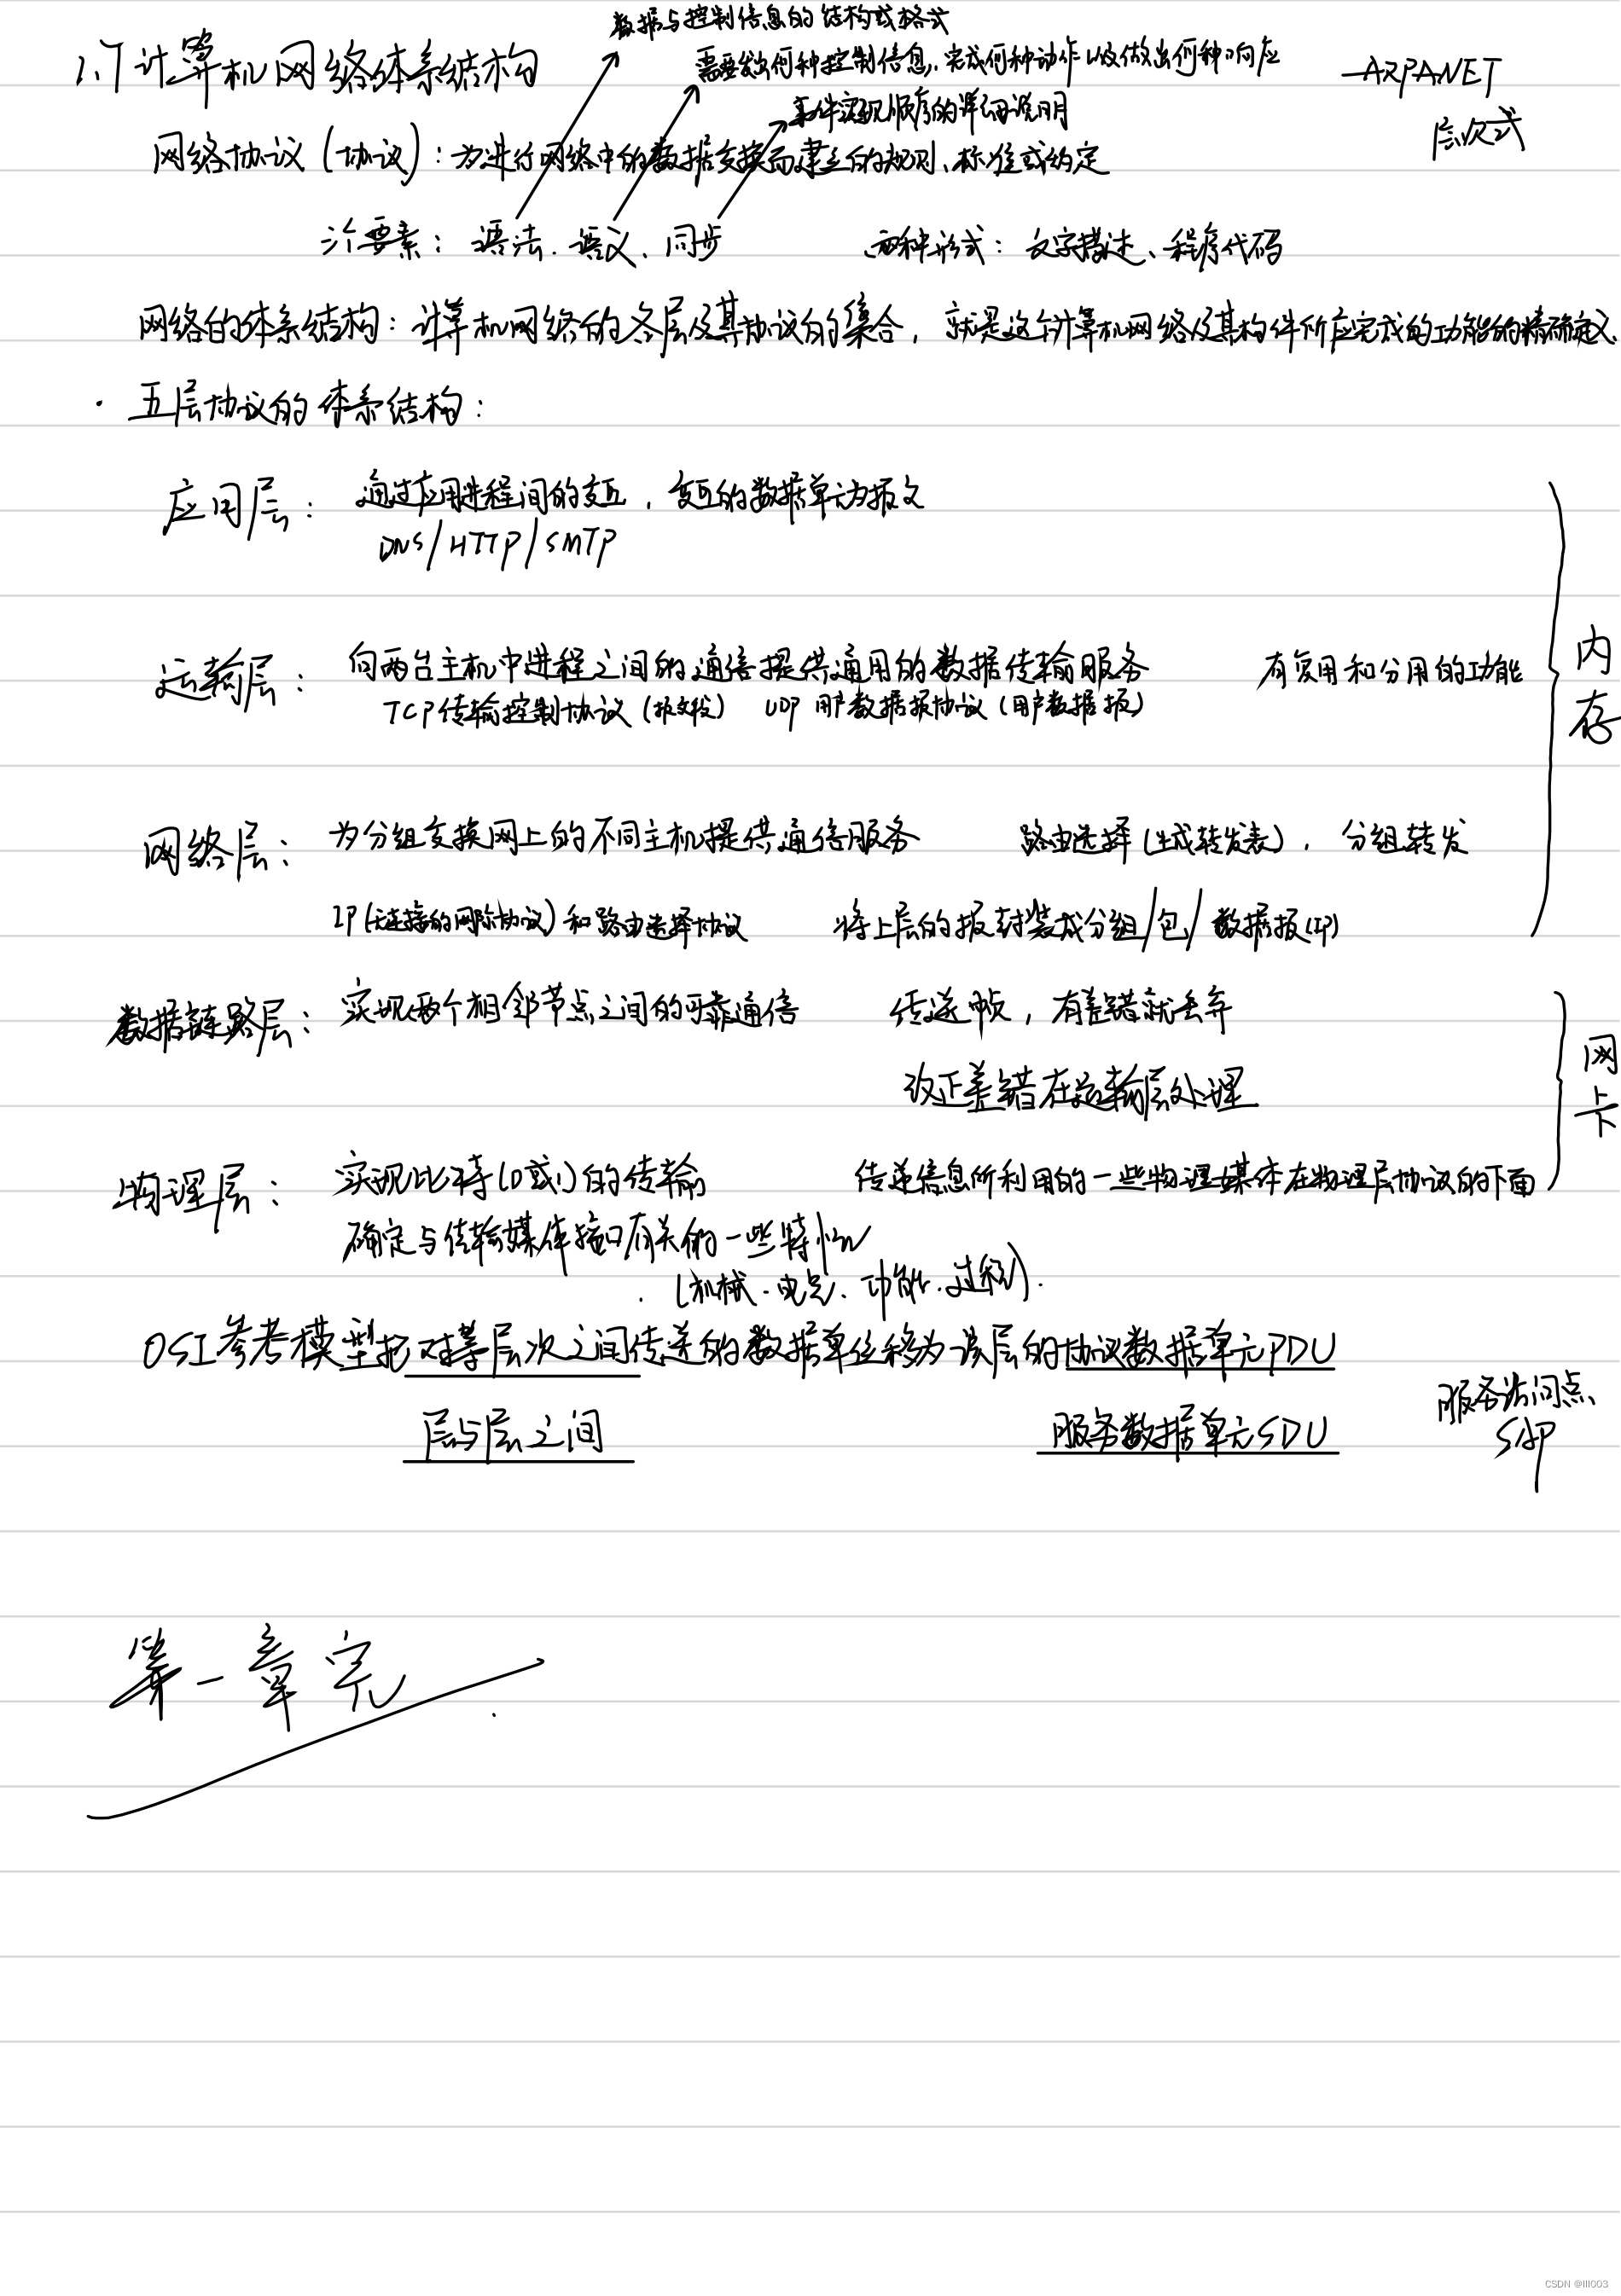 数据与控制信息的结构或格式
1.7 计算机网络体系结构
需要发出何种控制信息,完成何种动作以及做出何种响应
ARPANET
事件实现顺序的详细说明
层次式
网络协议(协议):为进行网络中的数据交换而建立的规则、标准或约定
三个要素:语法、语义、同步 两种形式:文字描述、程序代码
网络的体系结构:计算机网络的各层及其协议的集合,就是这个计算机网络及其构件所应完成的功能的精确定义
· 五层协议的体系结构:
应用层: 通过应用进程间的交互,交互的数据单元为报文
DNS/HTTP/SMTP
运输层: 向两台主机中进程之间的通信提供通用的数据传输服务 有复用和分用的功能
TCP传输控制协议(报文段) UDP 用户数据报协议(用户数据报)
内存
网络层: 为分组交换网上的不同主机提供通信服务 路由选择(生成转发表),分组转发
IP(无连接的网际协议)和路由选择协议 将上层的报封装成分组/包/数据报(IP)
数据链路层: 实现两个相邻节点之间的可靠通信 传送帧,有差错就丢弃
改正差错在运输层处理
网卡
物理层: 实现比特(0或1)的传输 传递信息所利用的一些物理媒体在物理层协议的下面
确定与传输媒体接口有关的一些特性
(机械、电气、功能、过程).
OSI参考模型把对等层次之间传送的数据单位称为该层的协议数据单元PDU
层与层之间 服务数据单元SDU
服务访问点
SAP
第一章完
CSDN @lll003